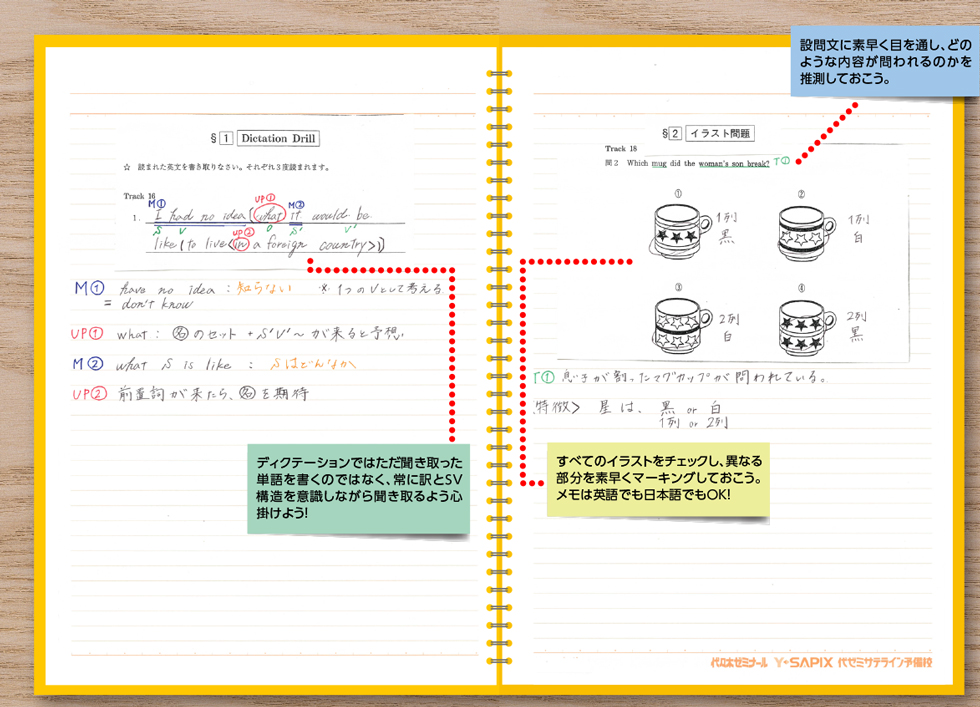 § 1 Dictation Drill
☆ 読まれた英文を書き取りなさい。それぞれ3度読まれます。
Track 16
M① UP① M②
1. I had no idea (what it would be
S V O S' V'
UP②
like (to live <in a foreign country>))
M① have no idea : 知らない ※ 1つのVとして考える
= don't know
UP① what : 名のセット + S'V'〜が来ると予想。
M② what S is like : Sはどんなか
UP② 前置詞が来たら、名を期待
ディクテーションではただ聞き取った
単語を書くのではなく、常に訳とSV
構造を意識しながら聞き取るよう心
掛けよう!
設問文に素早く目を通し、どの
ような内容が問われるのかを
推測しておこう。
§ 2 イラスト問題
Track 18
問2 Which mug did the woman's son break? T①
① ②
1列
黒
1列
白
③ ④
2列
白
2列
黒
T① 息子が割ったマグカップが問われている。
特徴> 星は、黒 or 白
1列 or 2列
すべてのイラストをチェックし、異なる
部分を素早くマーキングしておこう。
メモは英語でも日本語でもOK!
代々木ゼミナール Y-SAPIX 代ゼミサテライン予備校